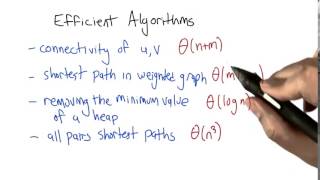 Efficient Algorithms
- connectivity of u,v Θ(n+m)
- shortest path in weighted graph Θ(m
- removing the minimum value Θ(log n)
of a heap
- all pairs shortest paths Θ(n³)